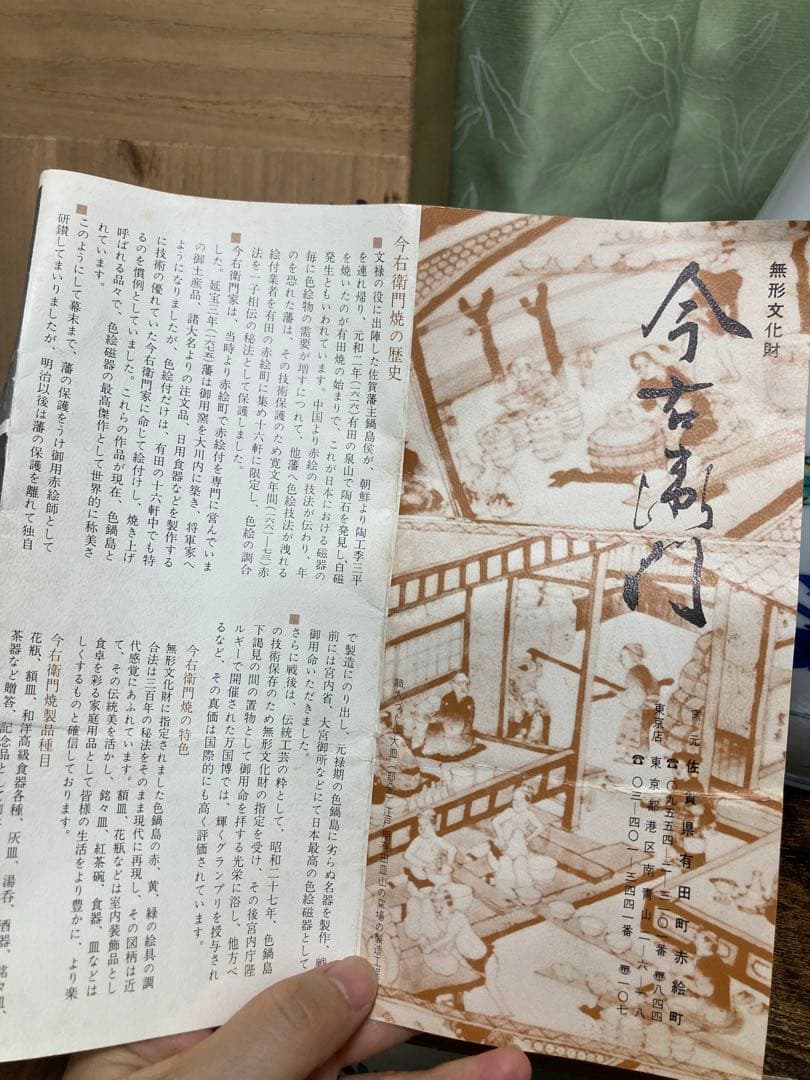 無形文化財
今右衛門
窯元 佐賀県有田町赤絵町
☎〇九五五四 二―三一〇一番 〠八四四
東京店 東京都港区南青山二―六―一八
☎〇三―四〇一―三四四一番 〠一〇七
今右衛門焼の歴史
■文禄の役に出陣した佐賀藩主鍋島侯が、朝鮮より陶工李三平
を連れ帰り、元和二年(一六一六)有田の泉山で陶石を発見し、白磁
を焼いたのが有田焼の始まりで、これが日本における磁器の
発生ともいわれています。中国より赤絵の技法が伝わり、年
毎に色絵物の需要が増すにつれて、他藩へ色絵技法が洩れる
のを恐れた藩は、その技術保護のため寛文年間(一六六一―七三)赤
絵付業者を有田の赤絵町に集め十六軒に限定し、色絵の調合
法を一子相伝の秘法として保護しました。
■今右衛門家は、当時より赤絵町で赤絵付を専門に営んでいま
した。延宝三年(一六七五)藩は御用窯を大川内に築き、将軍家へ
の御土産品、諸大名よりの注文品、日用食器などを製作する
ようになりましたが、色絵付だけは、有田の十六軒中でも特
に技術の優れていた今右衛門家に命じて絵付けし、焼き上げ
るのを慣例としていました。これらの作品が現在、色鍋島と
呼ばれる品々で、色絵磁器の最高傑作として世界的に称美さ
れています。
■このようにして幕末まで、藩の保護をうけ御用赤絵師として
研鑚してまいりましたが、明治以後は藩の保護を離れて独自
で製造にのり出し、元禄期の色鍋島に劣らぬ名器を製作、戦
前には宮内省、大宮御所などにて日本最高の色絵磁器として
御用命いただきました。
■さらに戦後は、伝統工芸の粋として、昭和二十七年、色鍋島
の技術保存のため無形文化財の指定を受け、その後宮内庁陛
下謁見の間の置物として御用命を拝する光栄に浴し、他方ベ
ルギーで開催された万国博では、輝くグランプリを授与され
るなど、その真価は国際的にも高く評価されています。
今右衛門焼の特色
無形文化財に指定されました色鍋島の赤、黄、緑の絵具の調
合法は三百年の秘法をそのまま現代に再現し、その図柄は近
代感覚にあふれています。額皿、花瓶などは室内装飾品とし
て、その伝統美を活かし、銘々皿、紅茶碗、食器、皿などは
食卓を彩る家庭用品として皆様の生活をより豊かに、より楽
しくするものと確信しております。
今右衛門焼製品種目
花瓶、額皿、和洋高級食器各種、灰皿、湯呑、酒器、銘々皿、
茶器など贈答、記念品として